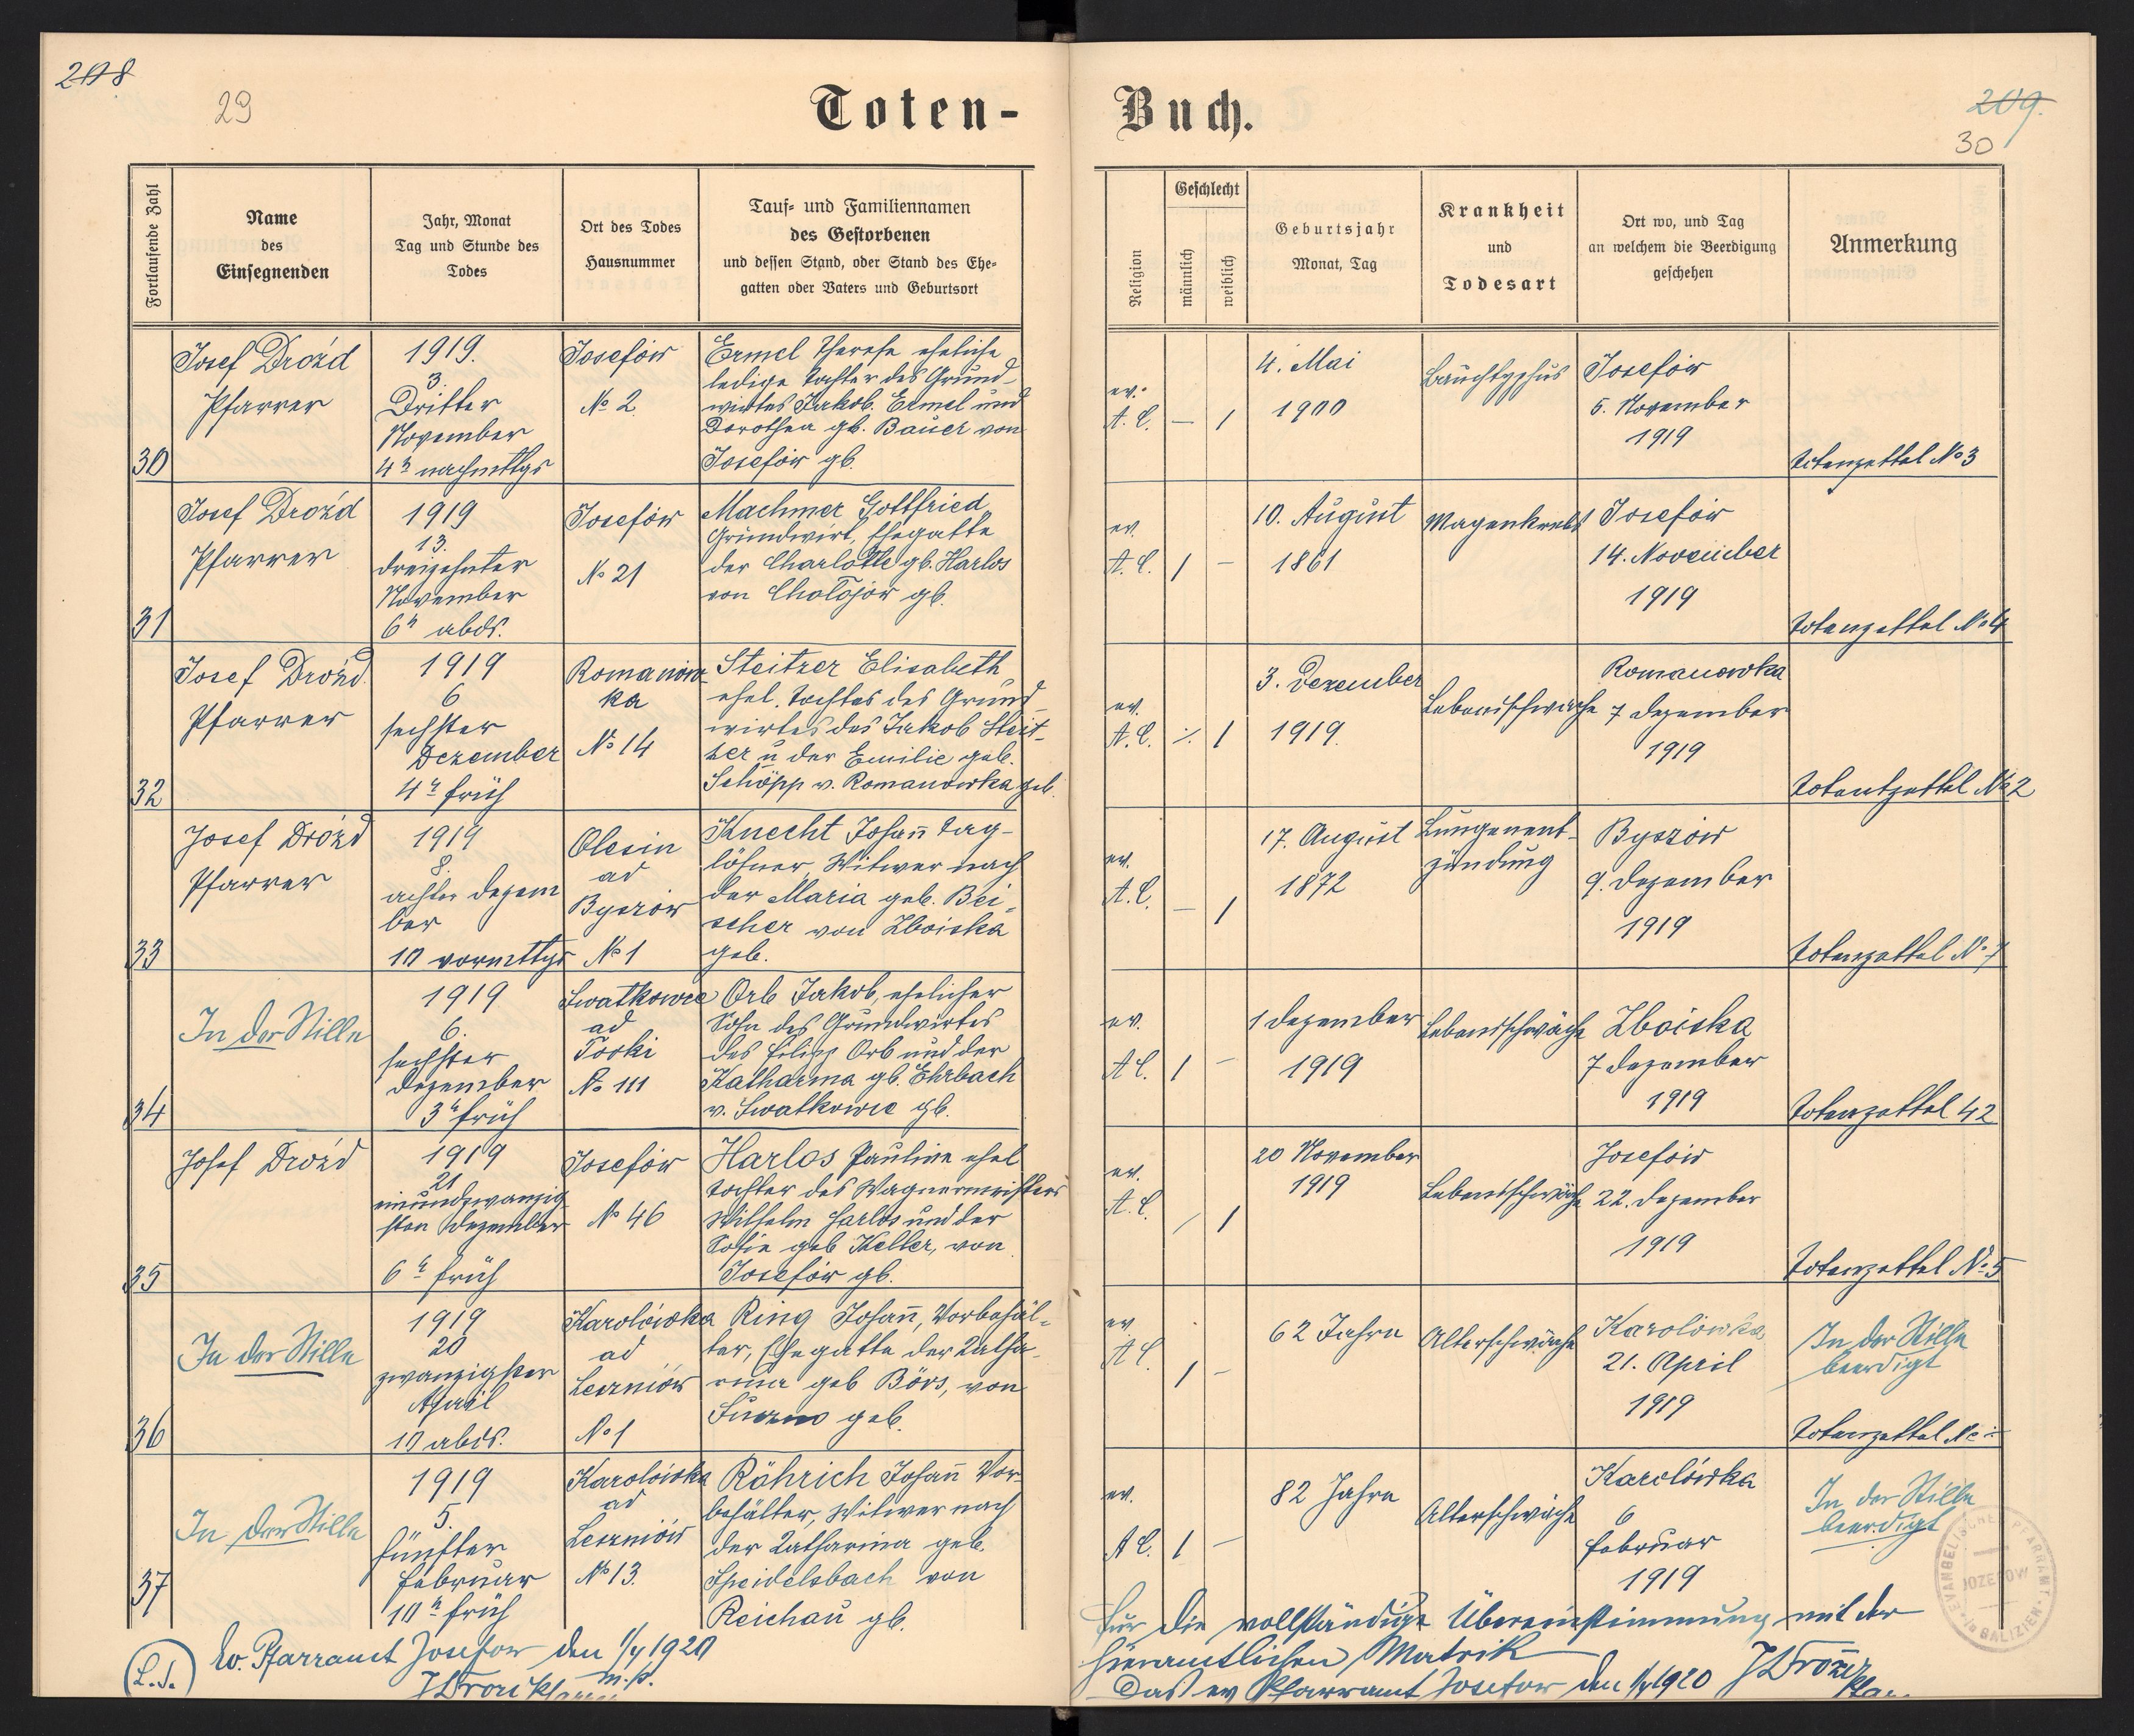 208
29
Toten-
Fortlaufende Zahl
Name
des
Einsegnenden
Jahr, Monat
Tag und Stunde des
Todes
Ort des Todes
Hausnummer
Tauf- und Familiennamen
des Gestorbenen
und dessen Stand, oder Stand des Ehe-
gatten oder Vaters und Geburtsort
30
Josef Drozd
Pfarrer
1919.
3.
Dritter
November
4 h nachmttgs
Josefów
№ 2
Ermel Therese eheliche
ledige Tochter des Grund-
wirtes Jakob Ermel und
Dorothea gb. Bauer von
Josefów gb.
31
Josef Drozd
Pfarrer
1919
13.
dreizehnter
November
6 h abds.
Josefów
№ 21
Machmer Gottfried
Grundwirt, Ehegatte
der Charlotte gb. Harlos
von Chołojów gb.
32
Josef Drozd
Pfarrer
1919
6
sechster
Dezember
4 h früh
Romanów-
ka
№ 14
Steitzer Elisabeth
ehel. Tochter des Grund-
wirtes des Jakob Steit-
zer u der Emilie geb.
Schöpp v. Romanowka geb.
33
Josef Drozd
Pfarrer
1919
8.
achter Dezem
ber
10 vormttgs
Olesin
ad
Byszów
№ 1
Knecht Johann Tag-
löhner, Witwer nach
der Maria geb. Bei-
scher von Zboiska
geb.
34
In der Stille
1919
6.
sechster
Dezember
3 h früh
Swatkowce
ad
Tooki
№ 111
Orb Jakob, ehelicher
Sohn des Grundwirtes
des Filipp Orb und der
Katharina gb. Ehrbach
v. Swatkowce gb.
35
Josef Drozd
1919
21
einundzwanzig
sten Dezember
6 h früh
Josefów
№ 46
Harlos Pauline ehel
Tochter des Wagnermeisters
Wilhelm Harlos und der
Sofie geb Keller, von
Josefów gb.
36
In der Stille
1919
20
zwanzigster
April
10 abds.
Karolówka
ad
Leszniów
№ 1
Ring Johann, Vorbehäl-
ter, Ehegatte der Katha-
rina geb Börs, von
geb.
37
In der Stille
1919
5.
fünfter
Februar
10 h früh
Karolówka
ad
Leszniów
№ 13.
Röhrich Johann Vor-
behälter, Witwer nach
der Katharina geb.
Speidelsbach von
Reichau gb.
(L.S.)
Ev. Pfarramt Josefow den 1/4 1920
m.p.
Buch.
209.
30
Religion
Geschlecht
männlich
weiblich
Geburtsjahr
Monat, Tag
Krankheit
und
Todesart
Ort wo, und Tag
an welchem die Beerdigung
geschehen
Anmerkung
ev.
A. C.
—
1
4. Mai
1900
Bauchtyphus
Josefów
5. November
1919
Totenzettel № 3
ev.
A. C.
1
—
10. August
1861
Magenkrebs
Josefów
14. November
1919
Totenzettel № 4
ev.
A. C.
1
3. Dezember
1919.
Lebensschwäche
Romanowka
7 Dezember
1919
Totentzettel № 2
ev.
A. C.
—
1
17. August
1872
Lungenent-
zündung
Byszów
9. Dezember
1919
Totenzettel № 7
ev.
A C.
1
—
1 Dezember
1919
Lebensschwäche
Zboiska
7 Dezember
1919
Totenzettel 42
ev.
A. C.
1
20 November
1919
Lebensschwäche
Josefów
22. Dezember
1919
Totenzettel № 5
ev.
A C.
1
—
62 Jahre
Altersschwäche
Karolówka
21. April
1919
In der Stille
beerdigt
Totenzettel №
ev.
A C.
1
—
82 Jahre
Altersschwäche
Karolówka
6
Februar
1919
In der Stille
beerdigt
EVANGELISCHES PFARRAMT
JOZEFOW
in GALIZIEN
Für die vollständige Übereinstimmung mit der
hieramtlichen Matrik
Das ev Pfarramt Josefow den 1/4 1920 J Drozd